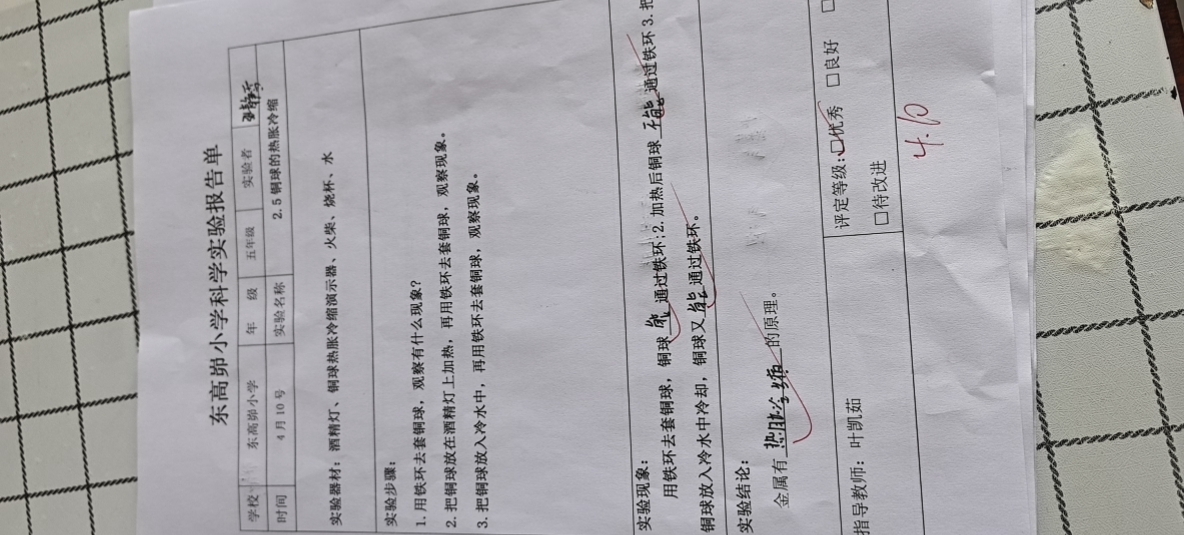 东高峁小学科学实验报告单
学校 东高峁小学 年 级 五年级 实验者
时间 4月10号 实验名称 2.5 铜球的热胀冷缩
实验器材：酒精灯、铜球热胀冷缩演示器、火柴、烧杯、水
实验步骤：
1. 用铁环去套铜球，观察有什么现象？
2. 把铜球放在酒精灯上加热，再用铁环去套铜球，观察现象。
3. 把铜球放入冷水中，再用铁环去套铜球，观察现象。
实验现象：
用铁环去套铜球，铜球 能 通过铁环；2. 加热后铜球 不能 通过铁环 3. 把
铜球放入冷水中冷却，铜球又 能 通过铁环。
实验结论：
金属有 热胀冷缩 的原理。
指导教师：叶凯茹
评定等级：□优秀 □良好 □
□待改进
4.10